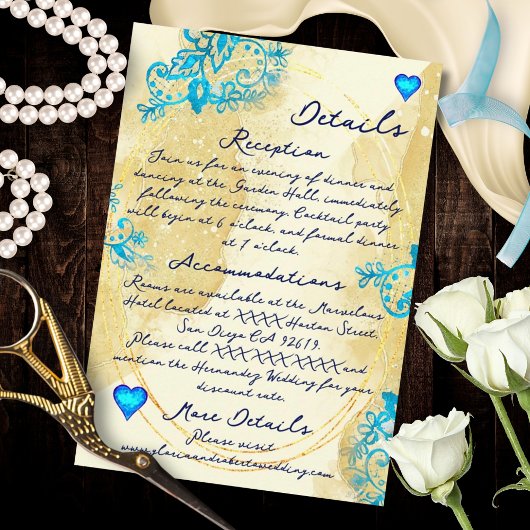 Details
Reception
Join us for an evening of dinner and
dancing at the Garden Hall, immediately
following the ceremony. Cocktail party
will begin at 6 o'clock, and formal dinner
at 7 o'clock.
Accommodations
Rooms are available at the Marvelous
Hotel located at XXXX Horton Street,
San Diego CA 92619.
Please call XXX XXX XXXX and
mention the Hernandez Wedding for your
discount rate.
More Details
Please visit
www.gloriaandrobertowedding.com